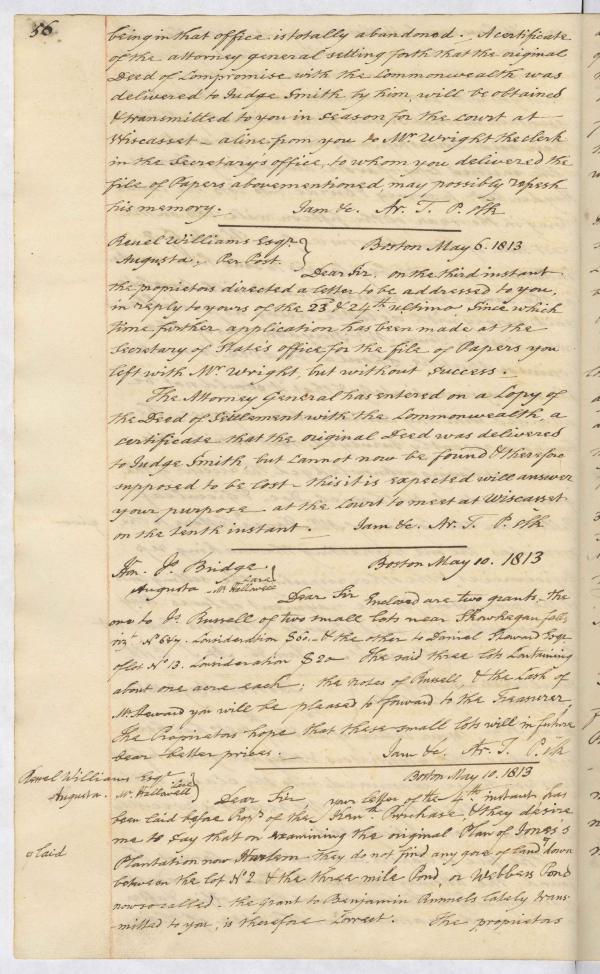 56
being in that office is totally abandoned. A certificate
of the attorney general setting forth that the original
Deed of Compromise with the Commonwealth was
delivered to Judge Smith by him, will be obtained
& transmitted to you in season for the court at
Wiscasset - a line from you to Mr. Wright the clerk
in the Secretary's office, to whom you delivered the
file of Papers abovementioned, may possibly refresh
his memory. I am &c. Ar. T. P. Clk
Reuel Williams Esqr. Boston May 6. 1813
Augusta. Per Post.
Dear Sir, on the third instant
the proprietors directed a letter to be addressed to you,
in reply to yours of the 23d & 24th ultimo, Since which
time further application has been made at the
Secretary of State's office for the file of Papers you
left with Mr. Wright, but without success.
The Attorney General has entered on a Copy of
the Deed of Settlement with the Commonwealth, a
certificate that the original Deed was delivered
to Judge Smith, but cannot now be found & therefore
supposed to be lost - this it is expected will answer
your purpose at the Court to meet at Wiscasset
on the tenth instant. I am &c. Ar. T. P. Clk
Hon. Js. Bridge. Boston May 10. 1813
Augusta Care Mr. Hallowell
Dear Sir Enclosed are two grants, the
one to Js. Russell of two small lots near Skowhegan falls
viz. No. 6 & 7. Consideration $60. & the other to Daniel Steward Esqr
of lot No. 13. Consideration $20 The said three lots Containing
about one acre each; the notes of Russell, & the Cash of
Mr. Steward you will be pleased to forward to the Treasurer,
The Proprietors hope that these small lots will in future
bear better prices. I am &c. Ar. T. P. Clk
Reuel Williams Esqr. Boston May 10. 1813
Augusta. Care Mr. Hallowell
Dear Sir, your letter of the 4th. instant has
been laid before Prop. of the Kenn. Purchase, & they desire
me to say that on examining the original Plan of Jones's
Plantation now Harlem they do not find any gore of land ° down
° laid
between the lot No. 2 & the three mile Pond, or Webbers Pond
now so called. the grant to Benjamin Runnels lately trans-
mitted to you, is therefore Correct. The proprietors